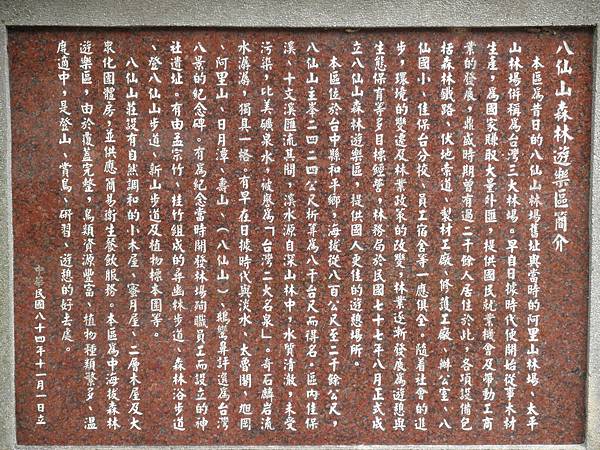 八仙山森林遊樂區簡介
本區為昔日的八仙山林場舊址與當時的阿里山林場、太平
山林場併稱為台灣三大林場。早自日據時代便開始從事木材
生產，為國家賺取大量外匯，提供國民就業機會及帶動工商
業的發展，鼎盛時期曾有過二千餘人居住於此，各項設備包
括森林鐵路、伏地索道、製材工廠、修護工廠、辦公室、八
仙國小、佳保台分校、員工宿舍等一應俱全。隨着社會的進
步，環境的變遷及林業政策的改變，林業逐漸發展為遊憩與
生態保育等多目標經營，林務局於民國七十七年八月正式成
立八仙山森林遊樂區，提供國人更佳的遊憩場所。
本區位於台中縣和平鄉，海拔從八百公尺至二千餘公尺，
八仙山主峯二四二四公尺折算為八千台尺而得名，區內佳保
溪、十文溪匯流其間，溪水源自深山林中，水質清澈，未受
污染，比美礦泉水，被譽為「台灣二大名泉」。奇石麟岩流
水潺潺，獨具一格。有早在日據時代與淡水、太魯閣、旭岡
、阿里山、日月潭、壽山、（八仙山）、鵝鑾鼻評選為台灣
八景的紀念碑。有為紀念當時開發林場殉職員工而設立的神
社遺址。有由孟宗竹、桂竹組成的尋幽林步道、森林浴步道
、登八仙山步道、新山步道及植物標本園等。
八仙山莊設有自然調和的小木屋、蜜月屋、二層木屋及大
眾化團體房，並供應簡易衛生餐飲服務。本區為中海拔森林
遊樂區，由於覆蓋完整，鳥類資源豐富、植物種類繁多、溫
度適中，是登山、賞鳥、研習、遊憩的好去處。
中華民國八十四年十一月一日立